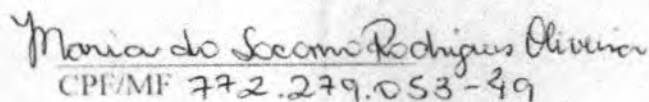 Maria do Socorro Rodrigues Oliveira
CPF/MF 772.279.053-49